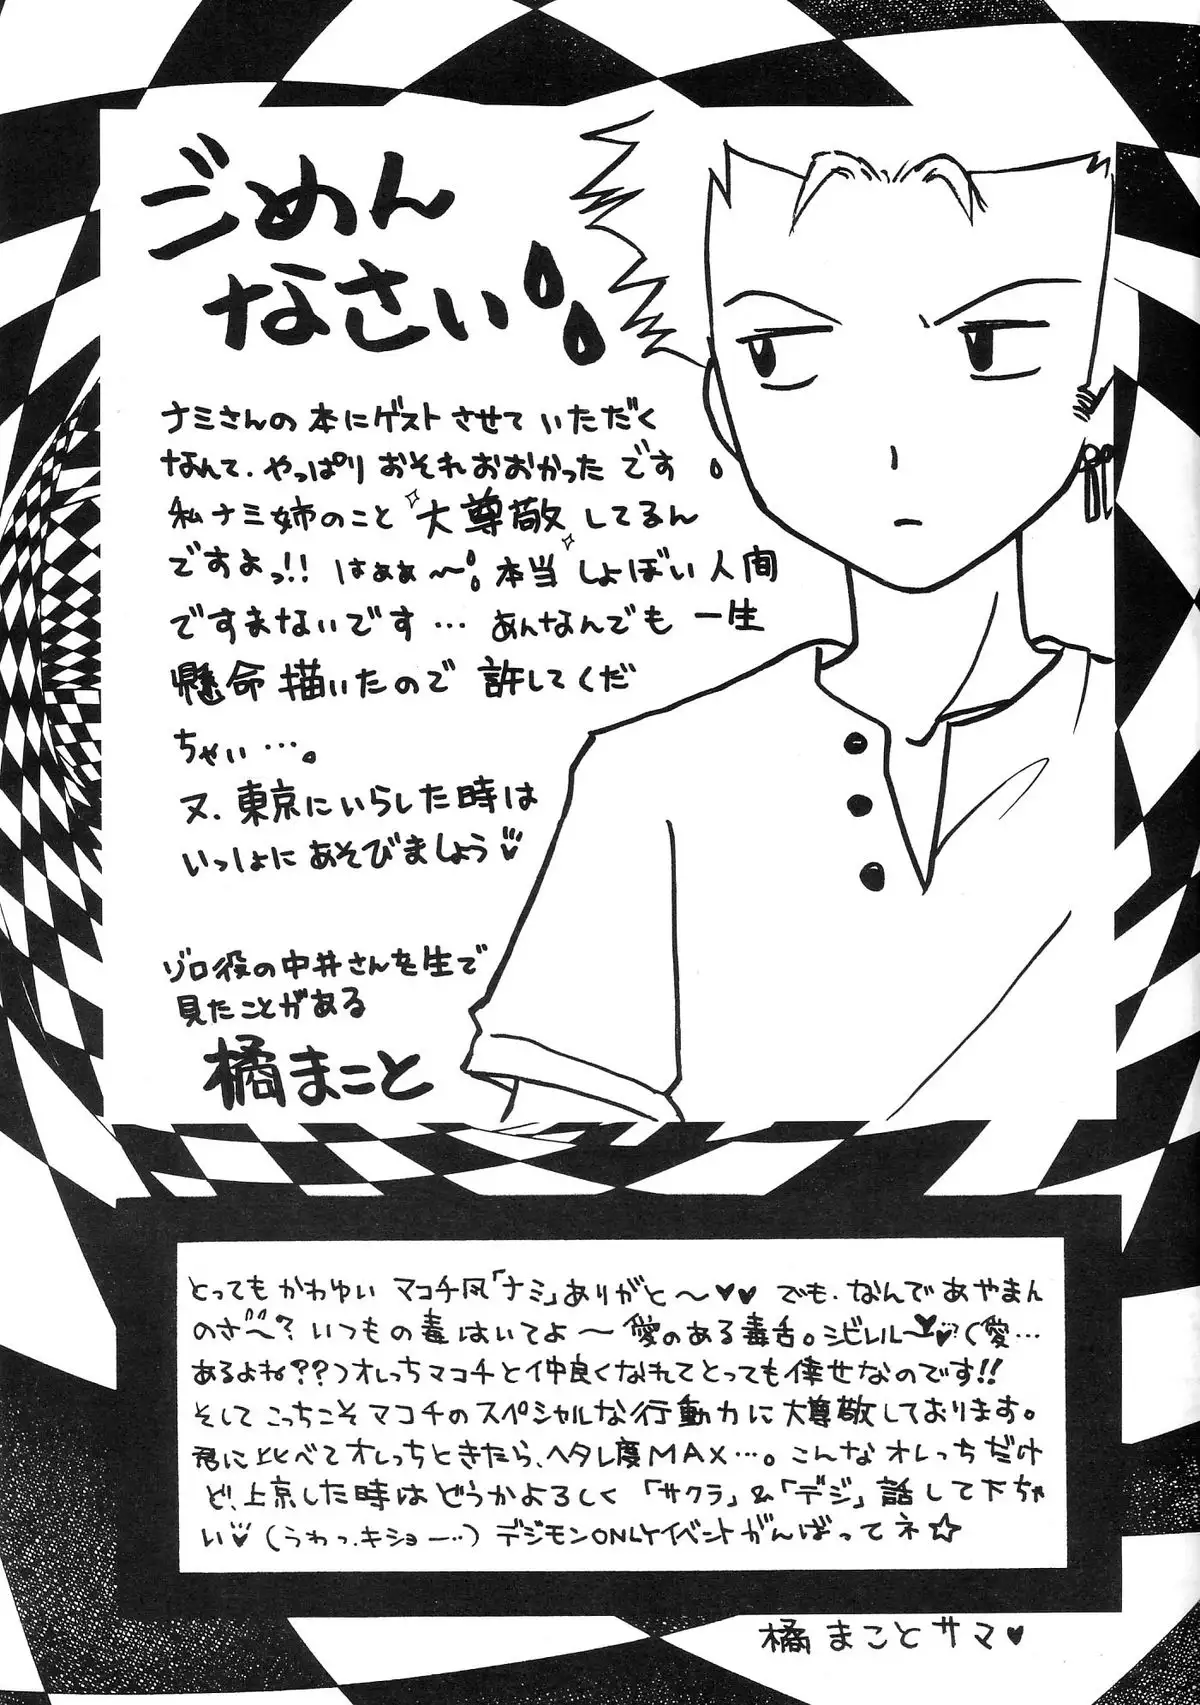 ごめん
なさい
ナミさんの本にゲストさせていただく
なんて、やっぱりおそれおおかったです
私ナミ姉のこと大尊敬してるん
ですよっ!!はぁぁ〜本当しょぼい人間
ですまないです…あんなんでも一生
懸命描いたので許してくだ
ちゃい…。
又、東京にいらした時は
いっしょにあそびましょう♡
ゾロ役の中井さんを生で
見たことがある
橘まこと
とってもかわゆいマコチ風「ナミ」ありがと〜♥♥でも、なんであやまん
のさ〜?いつもの毒はいてよ〜愛のある毒舌。シビレル〜♥(愛…
あるよね??)オレっちマコチと仲良くなれてとっても倖せなのです!!
そしてこっちこそマコチのスペシャルな行動力に大尊敬しております。
君に比べてオレっちときたら、ヘタレ度MAX…。こんなオレっちだけ
ど、上京した時はどうかよろしく「サクラ」&「デジ」話して下ちゃ
い♥(うわっ、キショー…)デジモンONLYイベントがんばってネ☆
橘まことサマ♥